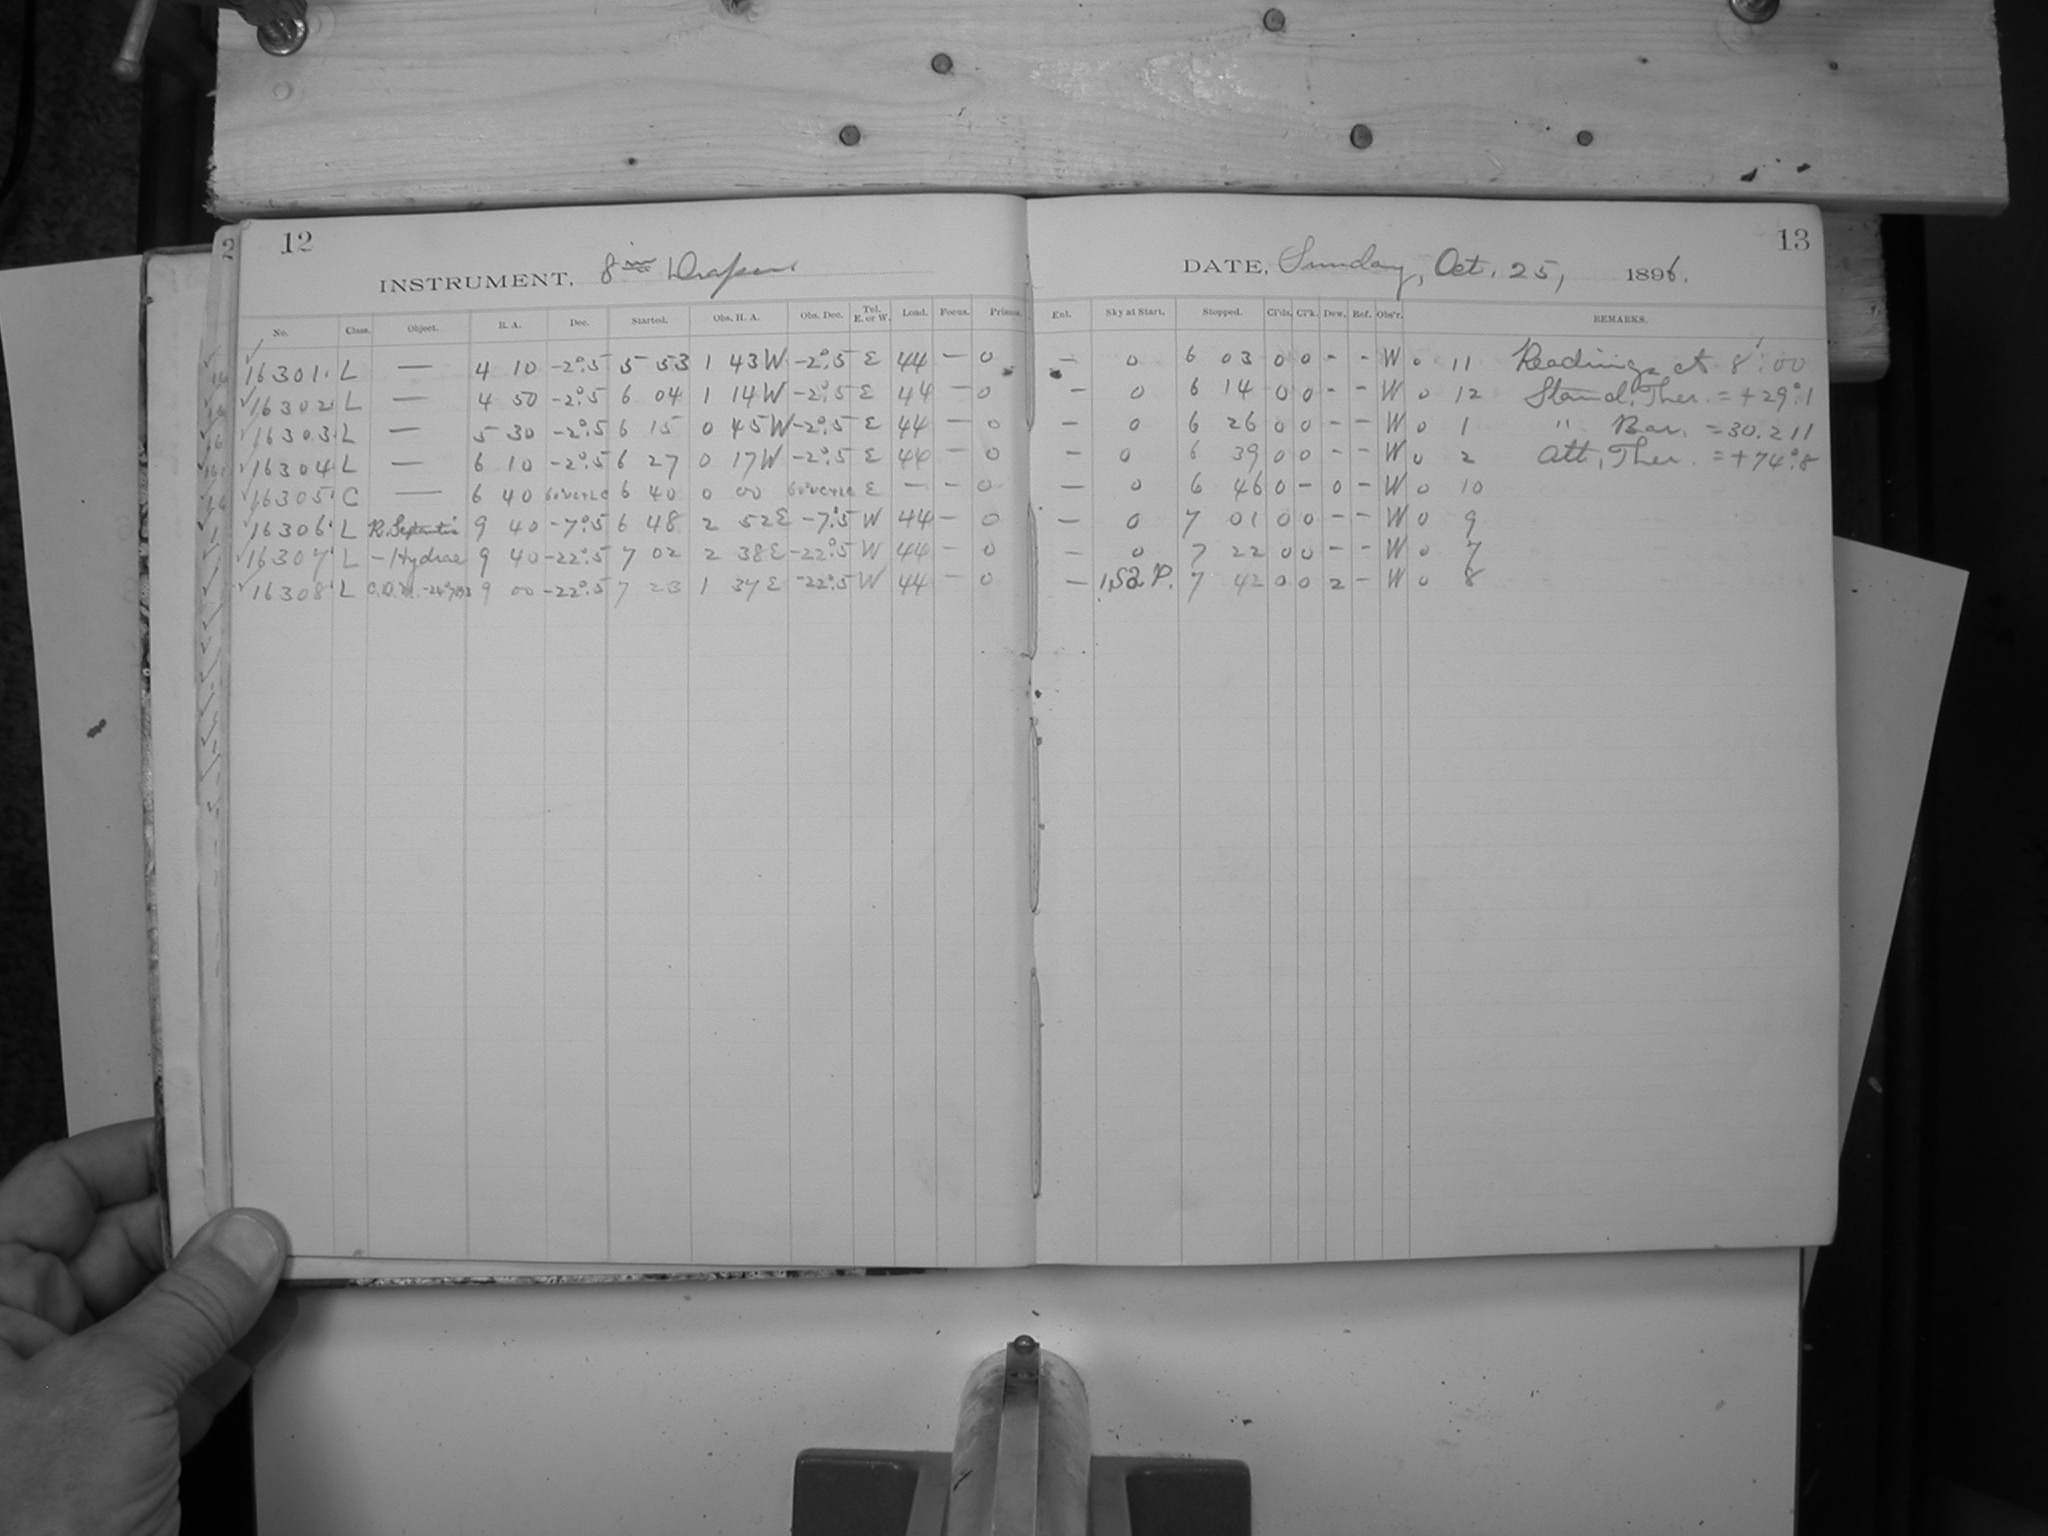 12
INSTRUMENT, 8 in Draper
No. Class. Object. R. A. Dec. Started. Obs. H. A. Obs. Dec. Tel. E. or W. Load. Focus. Prisms.
16301 L — 4 10 -2°.5 5 53 1 43 W -2°.5 E 44 — 0
16302 L — 4 50 -2°.5 6 04 1 14 W -2°.5 E 44 — 0
16303 L — 5 30 -2°.5 6 15 0 45 W -2°.5 E 44 — 0
16304 L — 6 10 -2°.5 6 27 0 17 W -2°.5 E 44 — 0
16305 C — 6 40 6 40 0 00 E — — 0
16306 L 9 40 -7°.5 6 48 2 52 E -7°.5 W 44 — 0
16307 L — Hydrae 9 40 -22°.5 7 02 2 38 E -22°.5 W 44 — 0
16308 L 9 00 -22°.5 7 23 1 37 E -22°.5 W 44 — 0
13
DATE, Sunday, Oct. 25, 1896.
Enl. Sky at Start. Stopped. Cl'ds. Cl'k. Dew. Ref. Obs'r. REMARKS.
— 0 6 03 0 0 - - W 0 11 Readings at 8:00
— 0 6 14 0 0 - - W 0 12 Stand. Ther. = +29°.1
— 0 6 26 0 0 - - W 0 1 " Bar. = 30.211
— 0 6 39 0 0 - - W 0 2 Att. Ther. = +74°.8
— 0 6 46 0 - 0 - W 0 10
— 0 7 01 0 0 - - W 0 9
— 0 7 22 0 0 - - W 0 7
— 7 42 0 0 2 - W 0 8